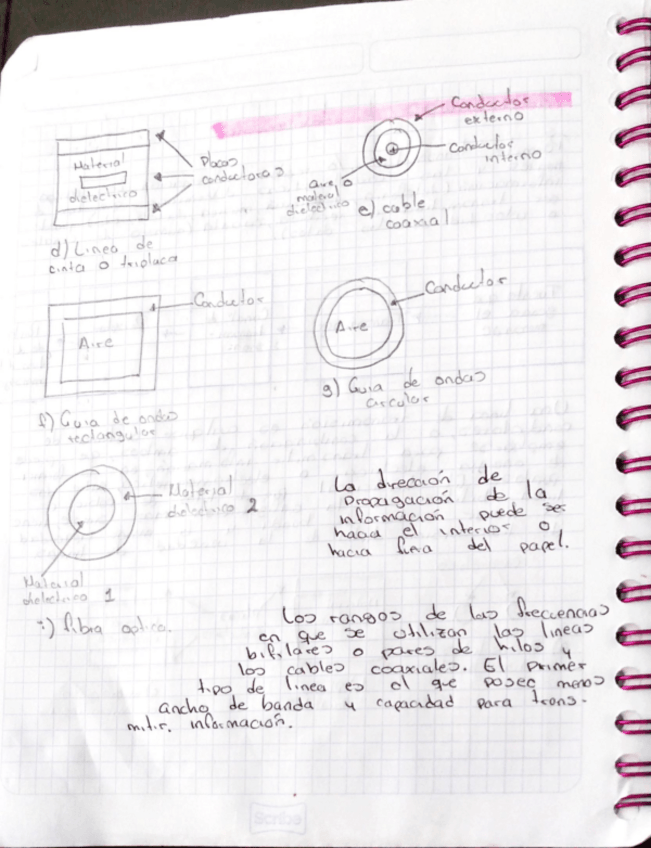 Conductor
externo
Conductor
interno
aire, o
material
dielectrico
e) cable
coaxial
Material
dielectrico
Placas
conductoras
d) Linea de
cinta o triplaca
Conductor
Aire
f) Guia de ondas
rectangular
Conductor
Aire
g) Guia de ondas
circular
Material
dielectrico 2
Material
dielectrico 1
i) fibra optica.
La dirección de
propagación de la
información puede ser
hacia el interior o
hacia fuera del papel.
Los rangos de las frecuencias
en que se utilizan las lineas
bifilares o pares de hilos y
los cables coaxiales. El primer
tipo de linea es el que posee menos
ancho de banda y capacidad para trans-
mitir. información.
Scribe